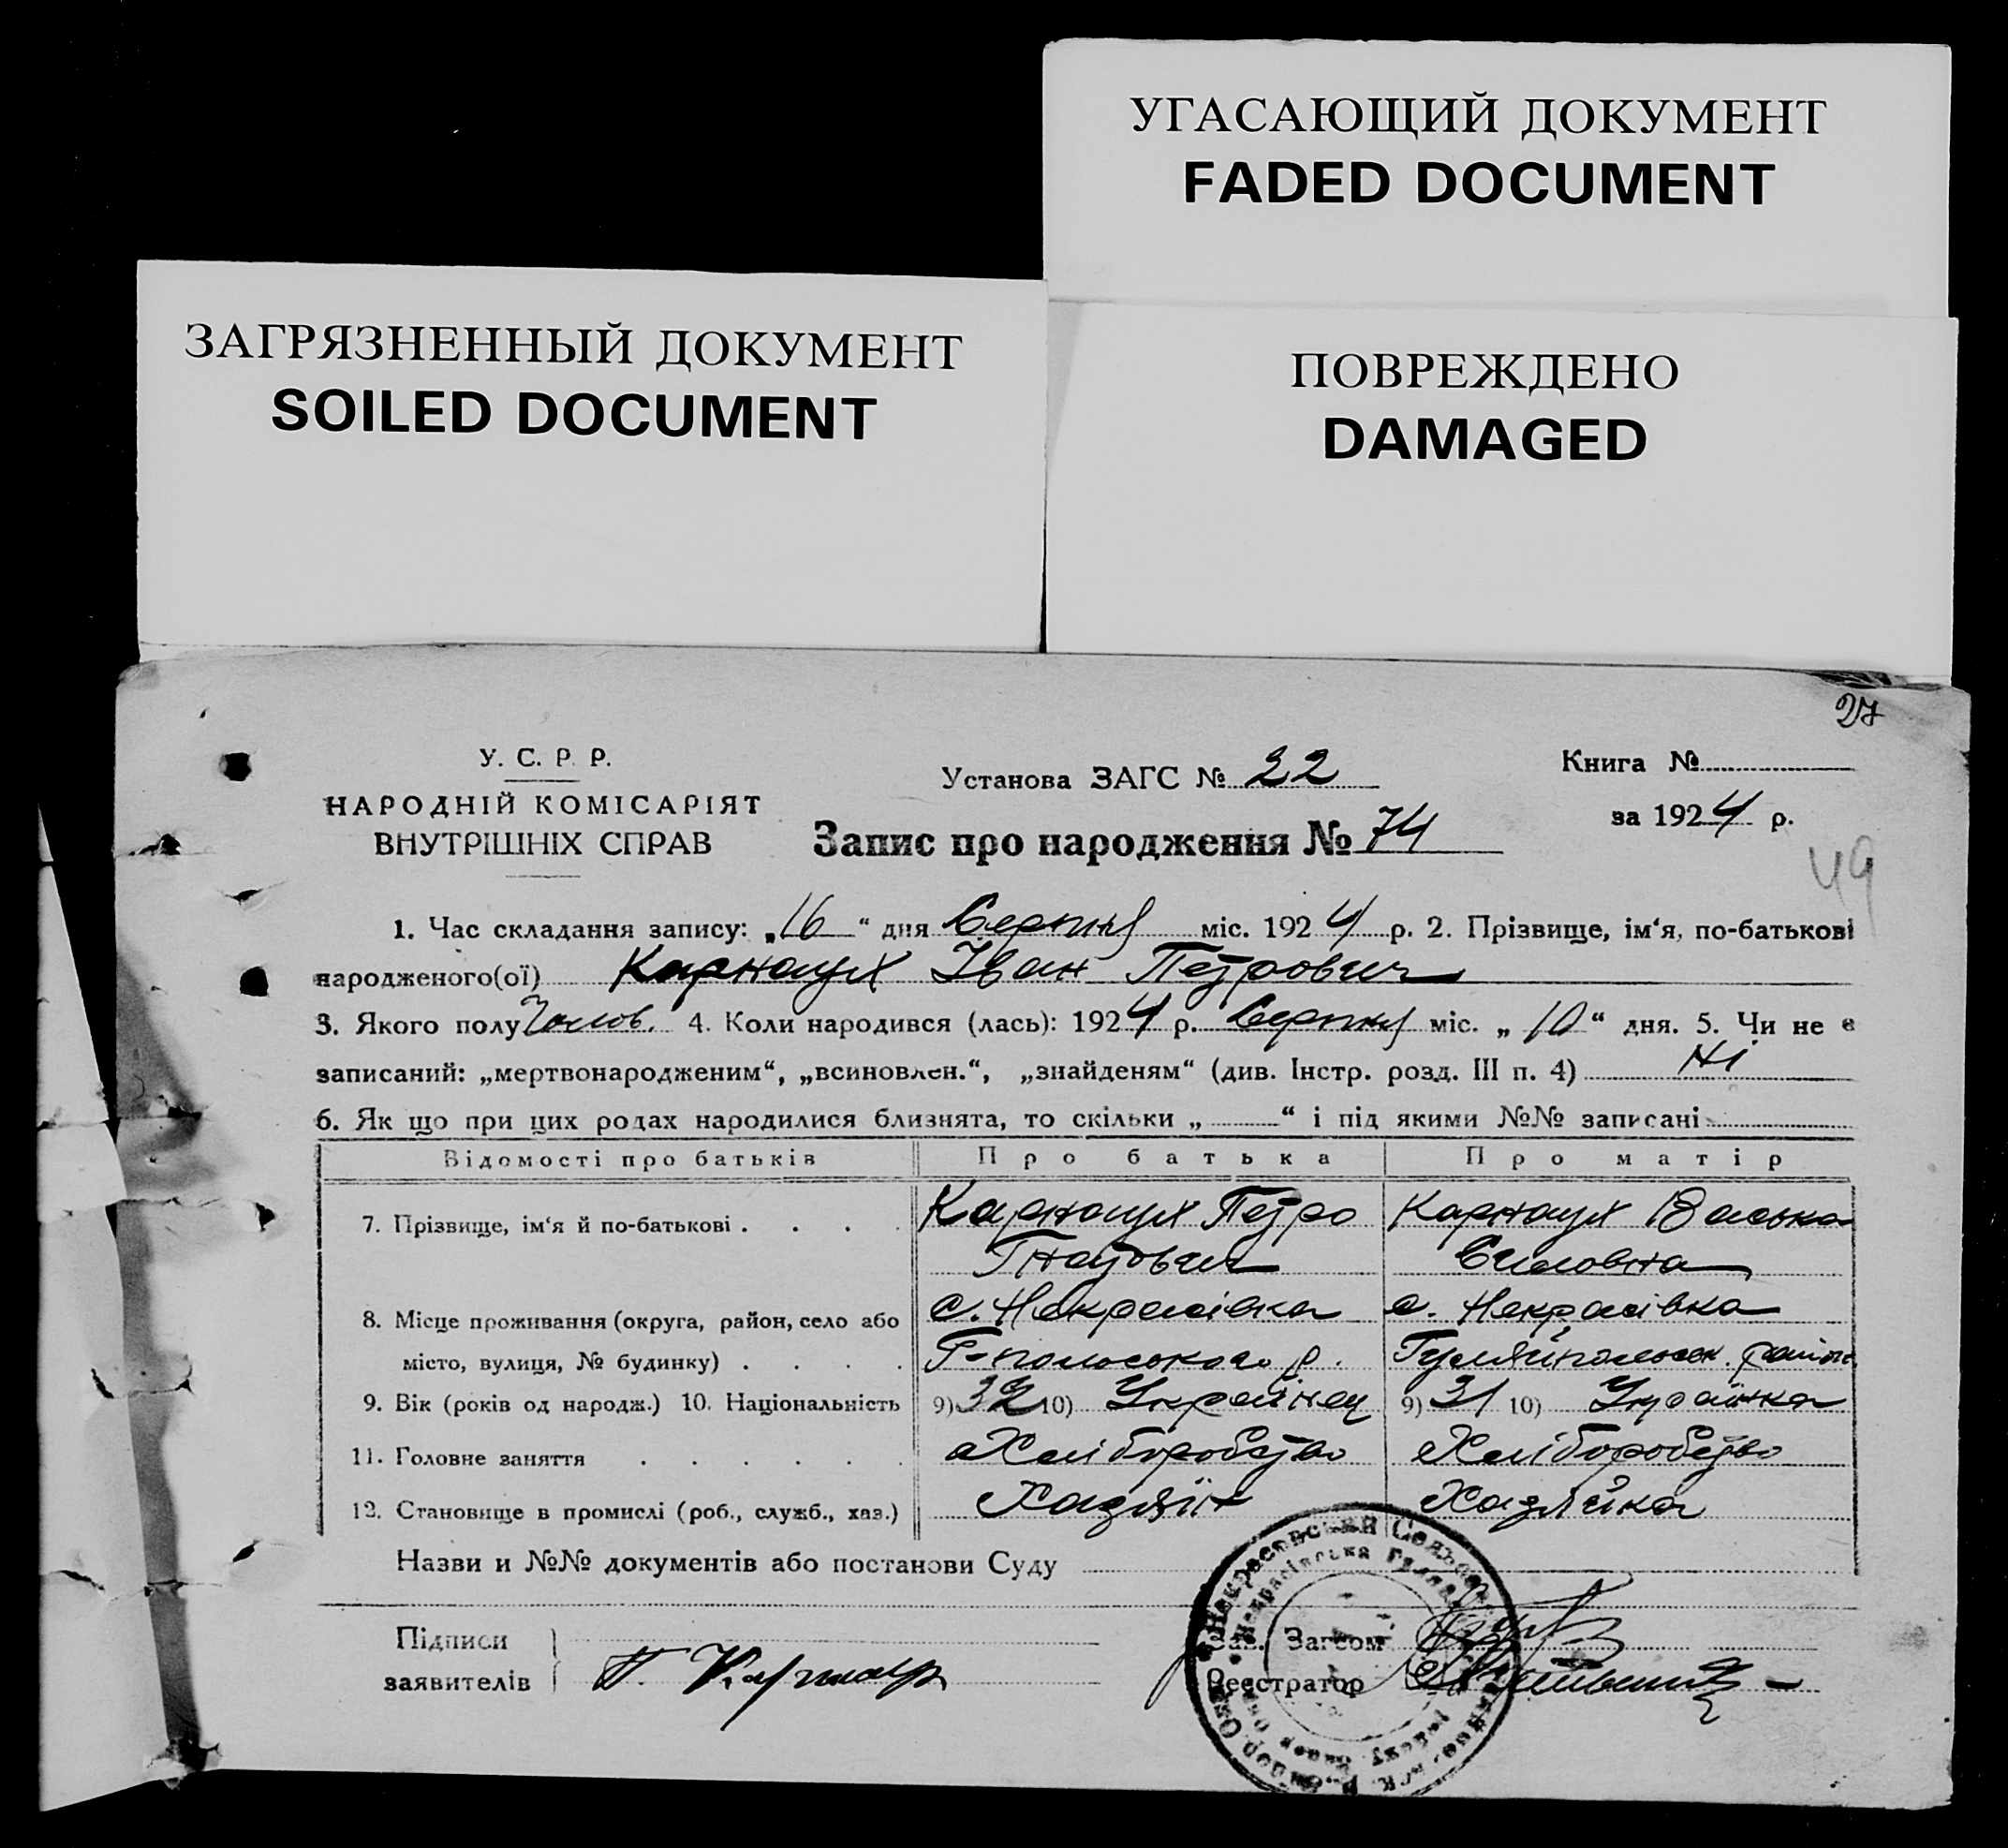 УГАСАЮЩИЙ ДОКУМЕНТ
FADED DOCUMENT
ЗАГРЯЗНЕННЫЙ ДОКУМЕНТ
SOILED DOCUMENT
ПОВРЕЖДЕНО
DAMAGED
27
У. С. Р. Р.
НАРОДНІЙ КОМІСАРІЯТ
ВНУТРІШНІХ СПРАВ
Установа ЗАГС № 22
Запис про народження № 74
Книга №
за 1924 р.
49
1. Час складання запису: „16“ дня Серпня міс. 1924 р. 2. Прізвище, ім‘я, по-батькові
народженого(ої) Карнаух Іван Петрович
3. Якого полу Чолов. 4. Коли народився (лась): 1924 р. Серпня міс. „10“ дня. 5. Чи не є
записаний: „мертвонародженим“, „всиновлен.“, „знайденям“ (див. Інстр. розд. III п. 4) Ні
6. Як що при цих родах народилися близнята, то скільки „ “ і під якими №№ записані
Відомості про батьків Про батька Про матір
7. Прізвище, ім‘я й по-батькові . . . . Карнаух Петро Карнаух Васька
Гнатович Силовна
8. Місце проживання (округа, район, село або с. Некрасівка с. Некрасівка
місто, вулиця, № будинку) . . . . Г-польського р. Гуляйпольськ. району
9. Вік (років од народж.) 10. Національність 9) 32 10) Українец 9) 31 10) Українка
11. Головне заняття . . . . . . Хліборобство Хліборобство
12. Становище в промислі (роб., служб., хаз.) Хазяїн Хазяйка
Назви и №№ документів або постанови Суду
Підписи
заявителів П. Карнаух
Зав. Загсом
Реєстратор